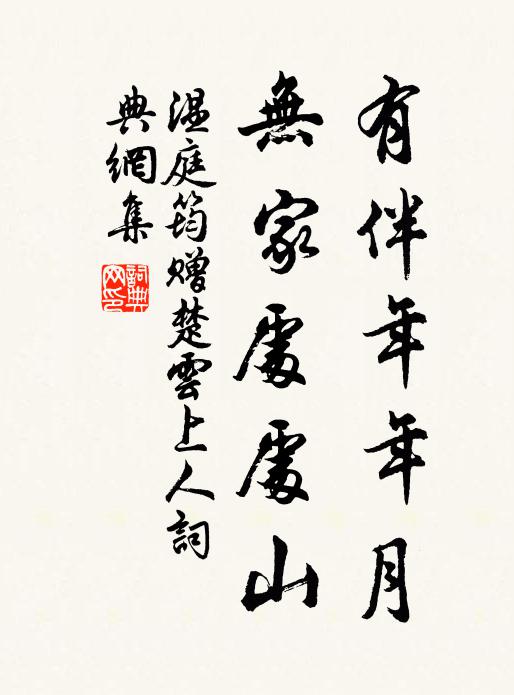 有伴年年月
無家處處山
温庭筠贈楚雲上人詞
典網集
詞典网印